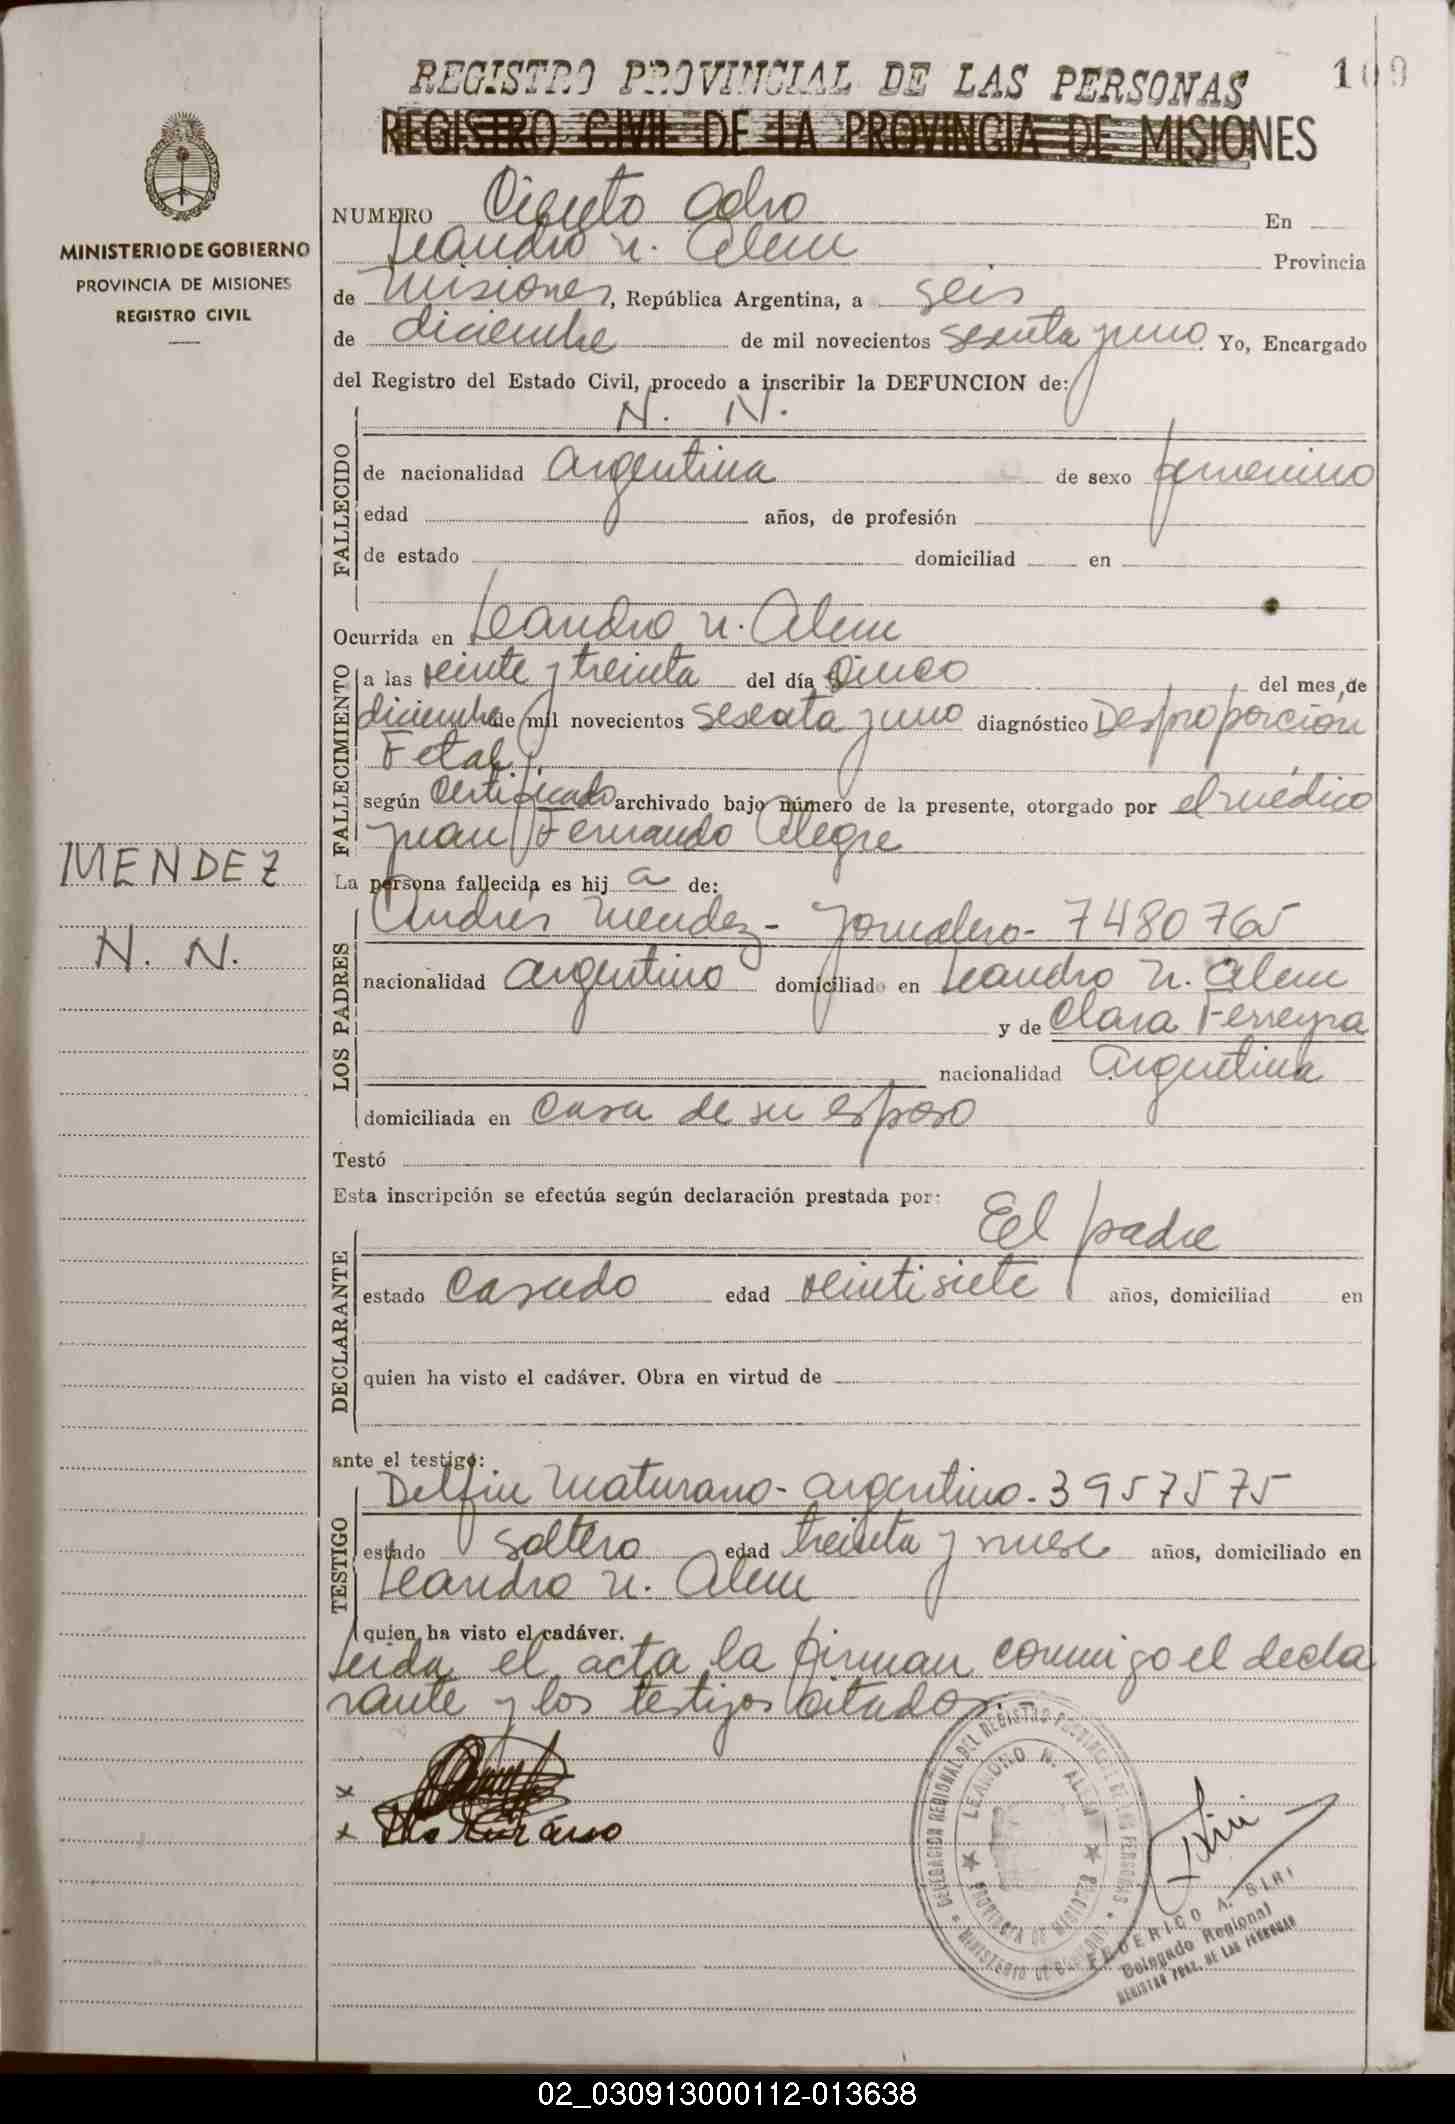 REGISTRO PROVINCIAL DE LAS PERSONAS
109
REGISTRO CIVIL DE LA PROVINCIA DE MISIONES
MINISTERIO DE GOBIERNO
PROVINCIA DE MISIONES
REGISTRO CIVIL
NUMERO Ciento ocho En
Leandro N. Alem Provincia
de Misiones, República Argentina, a seis
de diciembre de mil novecientos sesenta y uno. Yo, Encargado
del Registro del Estado Civil, procedo a inscribir la DEFUNCION de:
N. N.
FALLECIDO
de nacionalidad argentina de sexo femenino
edad años, de profesión
de estado domiciliad en
Ocurrida en Leandro N. Alem
FALLECIMIENTO
a las veinte y treinta del día cinco del mes de
diciembre de mil novecientos sesenta y uno diagnóstico Desproporción
Fetal.
según certificado archivado bajo número de la presente, otorgado por el médico
Juan Fernando Alegre
MENDEZ
N. N.
La persona fallecida es hij a de:
LOS PADRES
Andrés Mendez - Jornalero - 7480765
nacionalidad argentino domiciliado en Leandro N. Alem
y de Clara Ferreyra
nacionalidad Argentina
domiciliada en casa de su esposo
Testó
Esta inscripción se efectúa según declaración prestada por:
El padre
DECLARANTE
estado casado edad veintisiete años, domiciliad en
quien ha visto el cadáver. Obra en virtud de
ante el testigo:
TESTIGO
Delfin Maturano - argentino - 3957575
estado soltero edad treinta y nueve años, domiciliado en
Leandro N. Alem
quien ha visto el cadáver.
Leida el acta la firman conmigo el decla
rante y los testigos citados.
x
x Maturano
DELEGACION REGIONAL DEL REGISTRO PROVINCIAL DE LAS PERSONAS
MINISTERIO DE GOBIERNO
LEANDRO N. ALEM
PROVINCIA DE MISIONES
FEDERICO A. SIRI
Delegado Regional
REGISTRO PROV. DE LAS PERSONAS
02_030913000112-013638